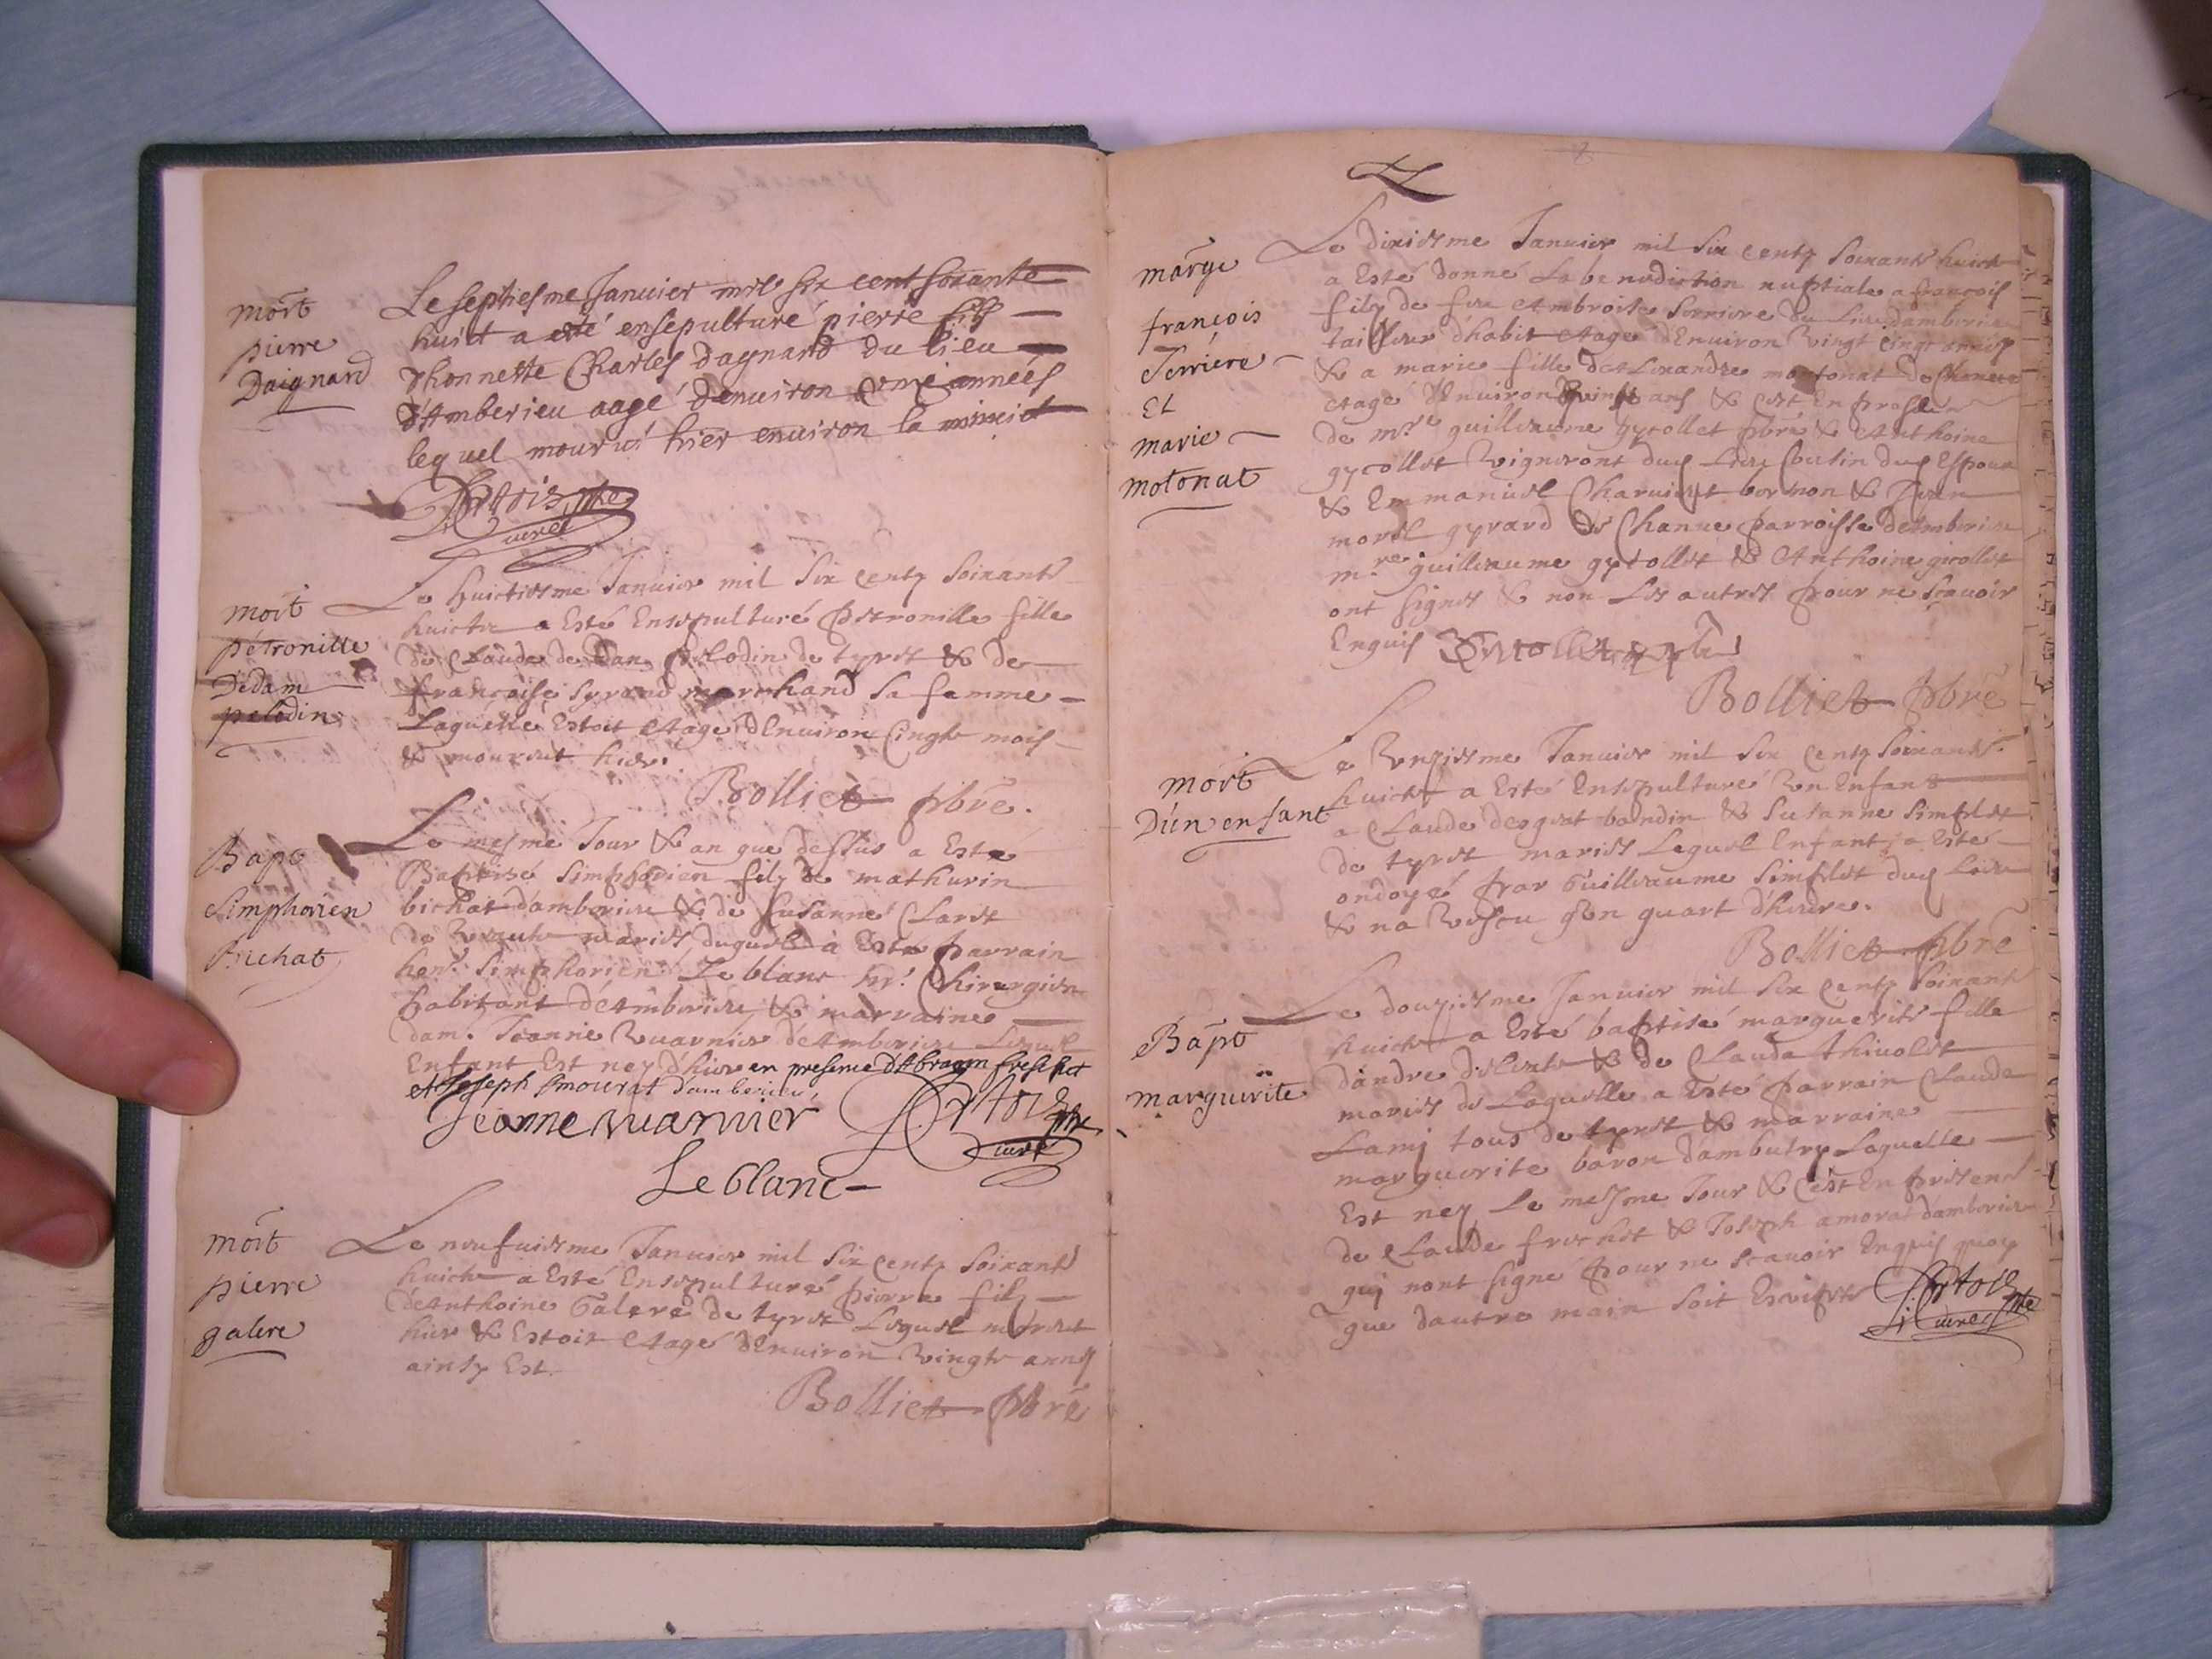 mort
pierre
Daignard
Le septiesme Januier mil six cent soixante
huict a esté ensepulturé pierre fils
d'honneste Charles Daynard du lieu
d'Amberieu aagé d'enuiron années
lequel mourut hier enuiron la minuict
mort
pétronille
Dedam
pelodin
Le huictiesme Januier mil six centz soixante
huicte a Esté Ensepulturé petronille fille
de Claude de Dan pelodin de tyret & de
francoise marchand sa femme
Laquelle Estoit Aagé d'Enuiron Cingts mois
& mourut hier.
Bolliet pbre.
Bapt
Simphorien
Bichat
Le mesme Jour & an que dessus a Esté
Baptisé Simphorien filz de mathurin
bichat d'amberieu & de susanne Claret
de mariés duquel a Esté parrain
hon. Simphorien Leblanc Chirurgien
habitant d'Amberieu & marraine
dam. Jeanne Vuarnier d'Amberieu Lequel
Enfant Est ney d'hier en presence d'Abraam freschet
et Joseph Amourat d'amberieu,
Jeanne vuarnier
Leblanc
mort
pierre
galere
Le neufuiesme Januier mil six centz soixante
huicte a Esté Ensepulturé pierre filz
d'Anthoine Galere de tyret Lequel mourut
hier & Estoit Aagé d'Enuiron vingts années
ainsy Est.
Bolliet pbre
marge
françois
Ferriere
Et
marie
motonat
Le dixiesme Januier mil six centz soixante huicte
a Esté donné La benediction nuptiale a françois
filz de feu Ambroise ferriere du Lieu d'amberieu
tailleur d'habit Aagé d'Enuiron vingt cinq années
& a marie fille d'Alexandre motonat de
Aagé d'Enuiron vingt ans & cest En presence
de mre guillaume gycollet pbre & Anthoine
gycollet vigneront dud Lieu Cousin dud Espoux
& Emmanuel Charuiest bornon & Jean
morel gyrard de Chanue parroisse d'Amberieu
mre guillaume gycollet & Anthoine gicollet
ont signes & non Les autres pour ne scauoir
Enquis
Bolliet pbre
mort
D'un enfant
Le Vnziesme Januier mil six centz soixante
huicte a Esté Ensepulturé Vn Enfant
a Claude degrat bondin & Susanne Simplet
de tyret mariés Lequel Enfant a Esté
ondoyé par Guillaume Simplet dud Lieu
& na Vescu q'un quart d'heure.
Bolliet pbre
Bapt
marguerite
Le douziesme Januier mil six centz soixante
huicte a Esté baptisé marguerite fille
d'andre & de Clauda thiuolet
mariés de Laquelle a Esté parrain Claude
Lamy tous de tyret & marraine
marguerite baron d'ambutry Laquelle
Est ney Le mesme Jour & cest En presence
de Claude frechet & Joseph amorat d'amberieu
quj nont signé pour ne scauoir Enquis quoy
que dautre main soit Escripte